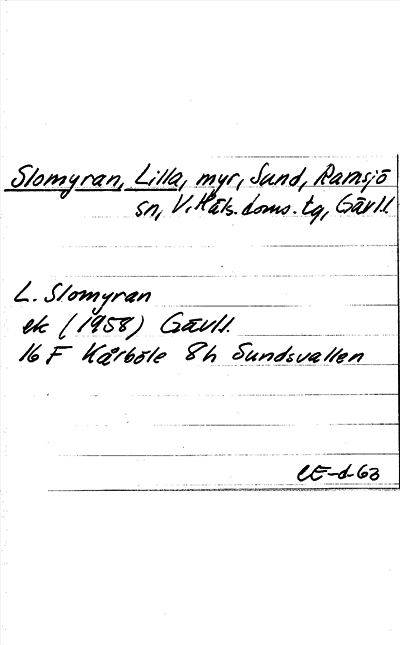 Slomyran, Lilla, myr, Sund, Ramsjö
sn, V. Häls. doms. tg, Gävll.
L. Slomyran
ek (1958) Gävll.
16 F Kårböle 8h Sundsvallen